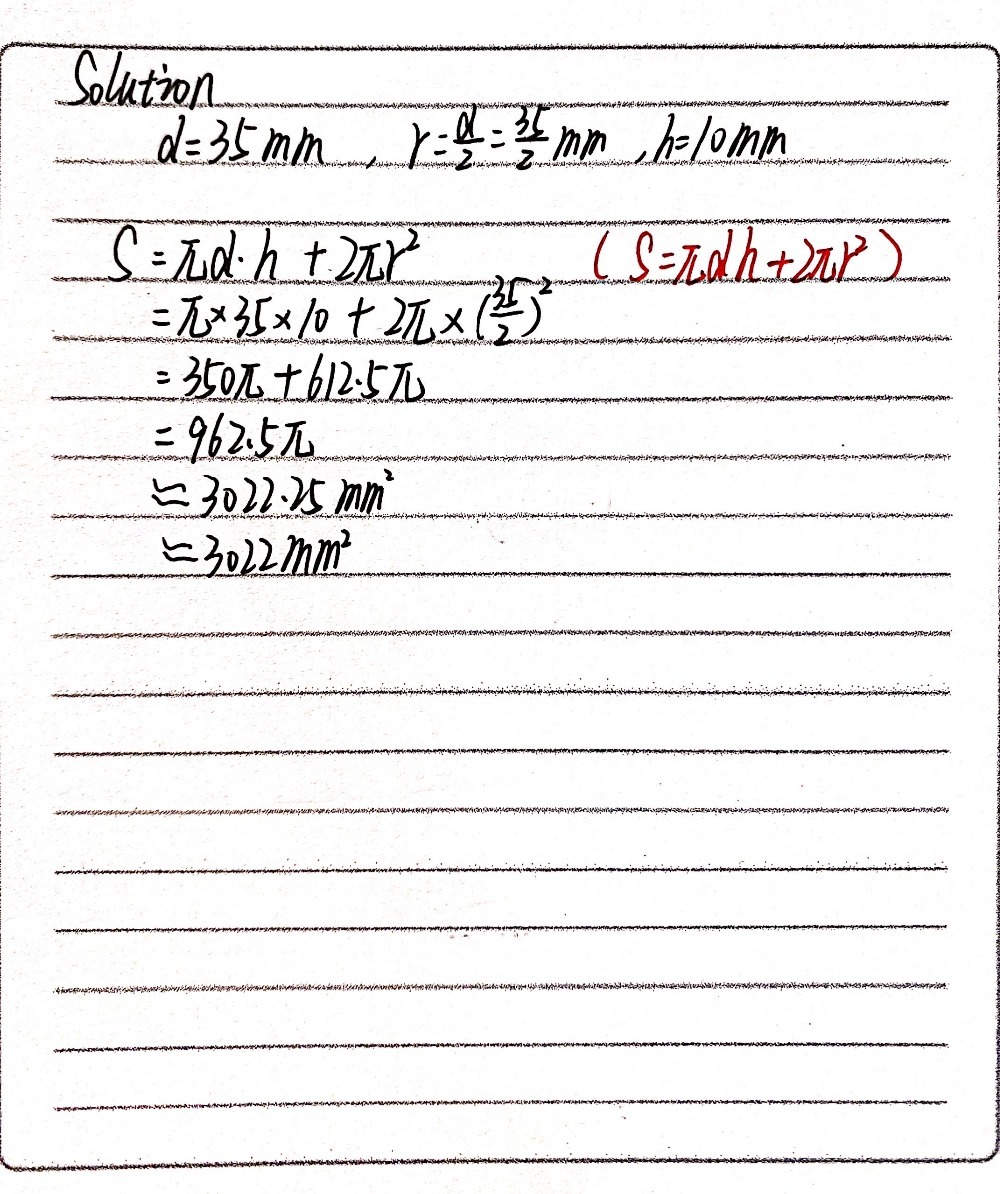 Solution
d=35mm , r=d/2=35/2mm , h=10mm
S=πd·h+2πr² (S=πdh+2πr²)
=π×35×10+2π×(35/2)²
=350π+612.5π
=962.5π
≈3022.25mm²
≈3022mm²